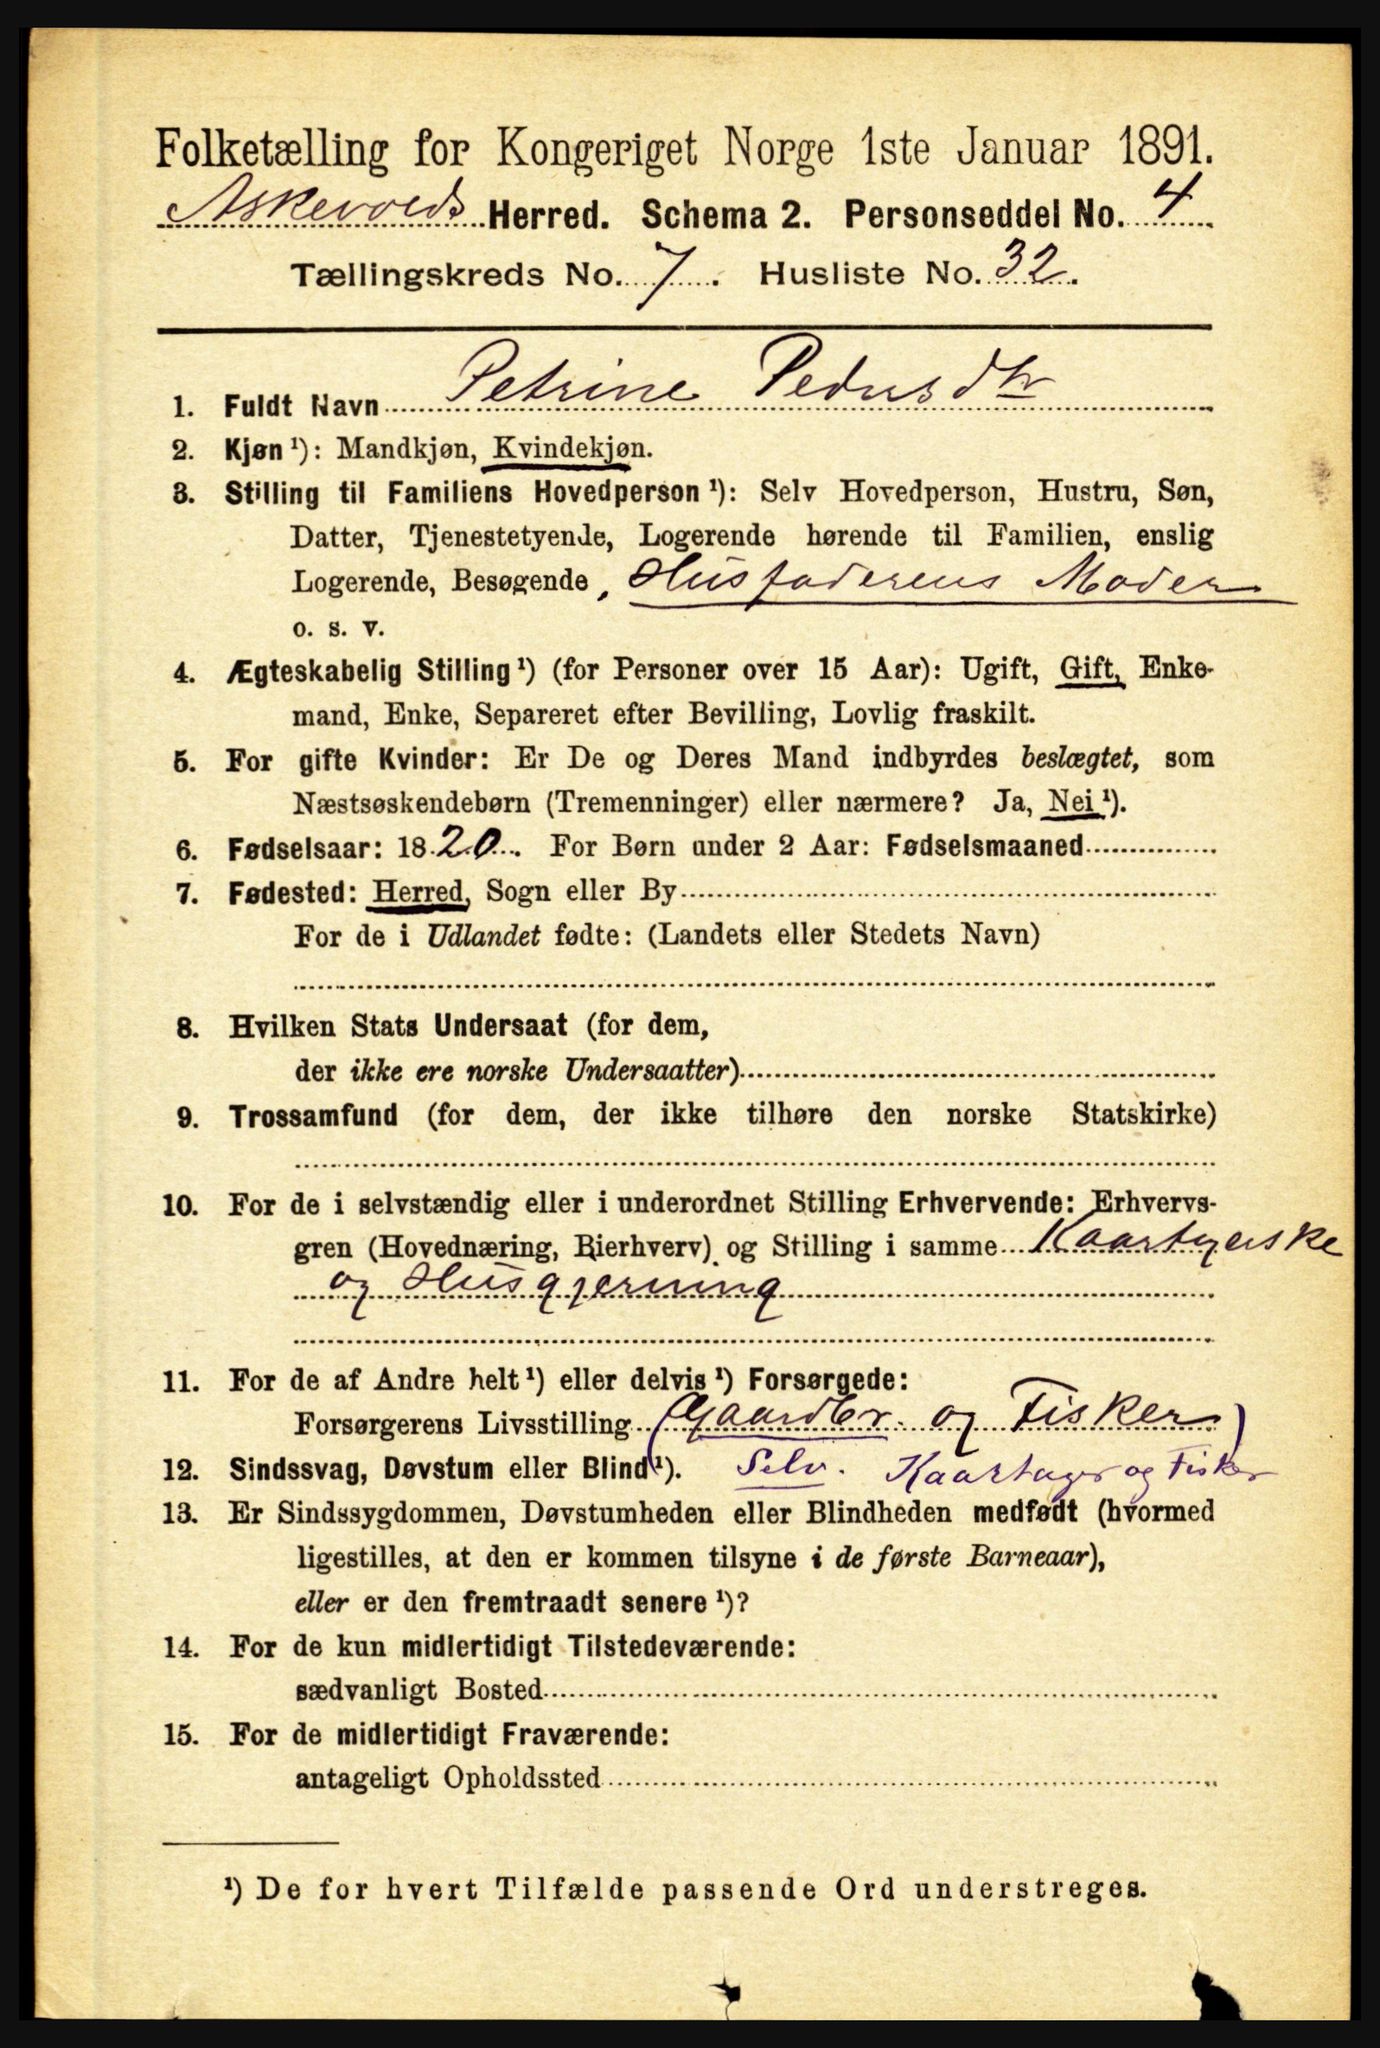 Folketælling for Kongeriget Norge 1ste Januar 1891.
Askevolds Herred. Schema 2. Personseddel No. 4
Tællingskreds No. 7. Husliste No. 32.
1. Fuldt Navn Petrine Pedersdtr
2. Kjøn ¹): Mandkjøn, Kvindekjøn.
3. Stilling til Familiens Hovedperson ¹): Selv Hovedperson, Hustru, Søn,
Datter, Tjenestetyende, Logerende hørende til Familien, enslig
Logerende, Besøgende, Husfaderens Moder
o. s. v.
4. Ægteskabelig Stilling ¹) (for Personer over 15 Aar): Ugift, Gift, Enke-
mand, Enke, Separeret efter Bevilling, Lovlig fraskilt.
5. For gifte Kvinder: Er De og Deres Mand indbyrdes beslægtet, som
Næstsøskendebørn (Tremenninger) eller nærmere? Ja, Nei ¹).
6. Fødselsaar: 1820. For Børn under 2 Aar: Fødselsmaaned
7. Fødested: Herred, Sogn eller By
For de i Udlandet fødte: (Landets eller Stedets Navn)
8. Hvilken Stats Undersaat (for dem,
der ikke ere norske Undersaatter)
9. Trossamfund (for dem, der ikke tilhøre den norske Statskirke)
10. For de i selvstændig eller i underordnet Stilling Erhvervende: Erhvervs-
gren (Hovednæring, Bierhverv) og Stilling i samme Kaartagerske
og Husgjerning
11. For de af Andre helt ¹) eller delvis ¹) Forsørgede:
Forsørgerens Livsstilling (Gaardbr. og Fisker)
12. Sindssvag, Døvstum eller Blind ¹). Selv. Kaartager og Fisker
13. Er Sindssygdommen, Døvstumheden eller Blindheden medfødt (hvormed
ligestilles, at den er kommen tilsyne i de første Barneaar),
eller er den fremtraadt senere ¹)?
14. For de kun midlertidigt Tilstedeværende:
sædvanligt Bosted
15. For de midlertidigt Fraværende:
antageligt Opholdssted
¹) De for hvert Tilfælde passende Ord understreges.